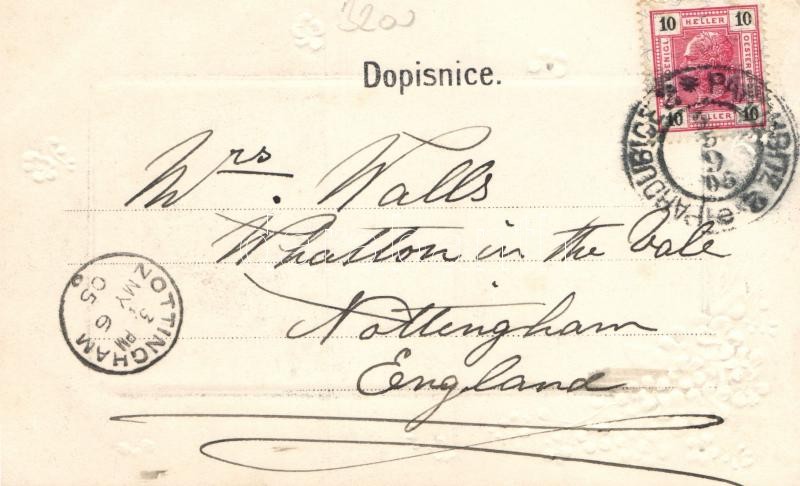 3200
10 HELLER 10
10 HELLER 10
Dopisnice.
PARDUBICE 2
PARDUBITZ 2
Mrs. Walls
Whatton in the Vale
Nottingham
England
NOTTINGHAM
3 PM
MY 6
05